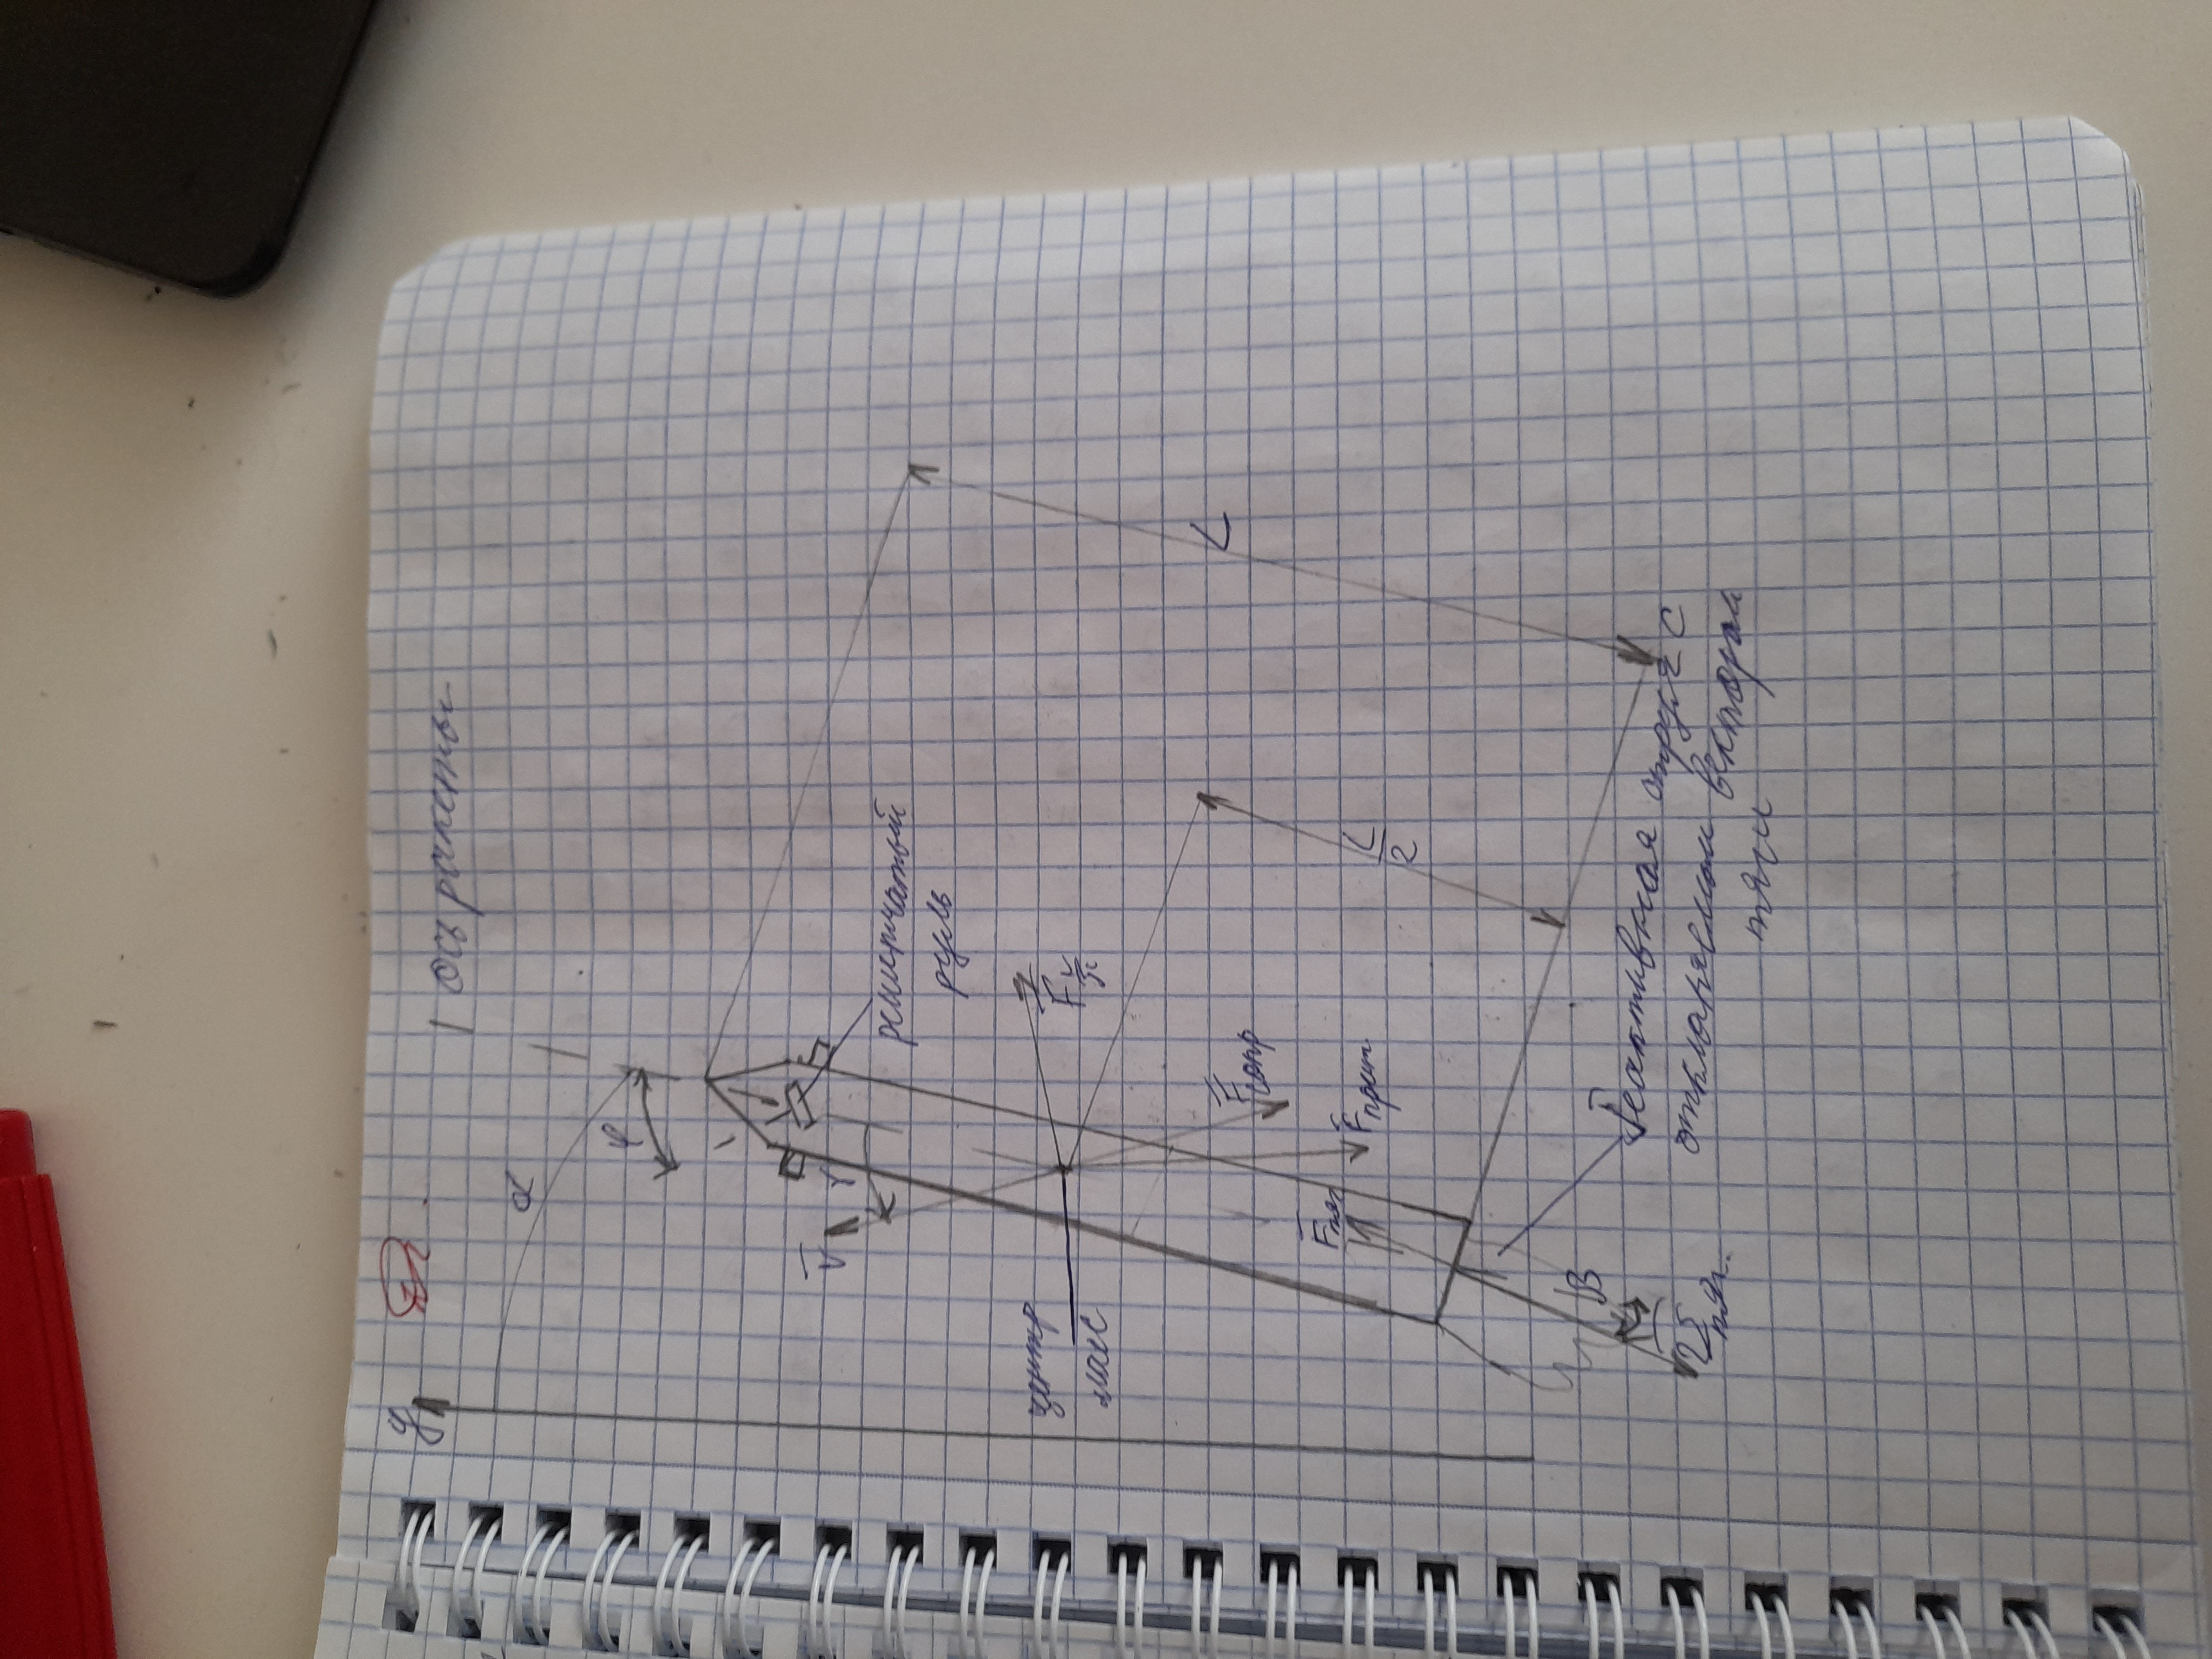 y
Ось ракеты
α
φ
V
γ
решетчатый
руль
центр
масс
F
L
Fсопр
Fтяг
Fприт.
L
2
β
Реактивная струя с
отклоняемом вектором
тяги
тяг.